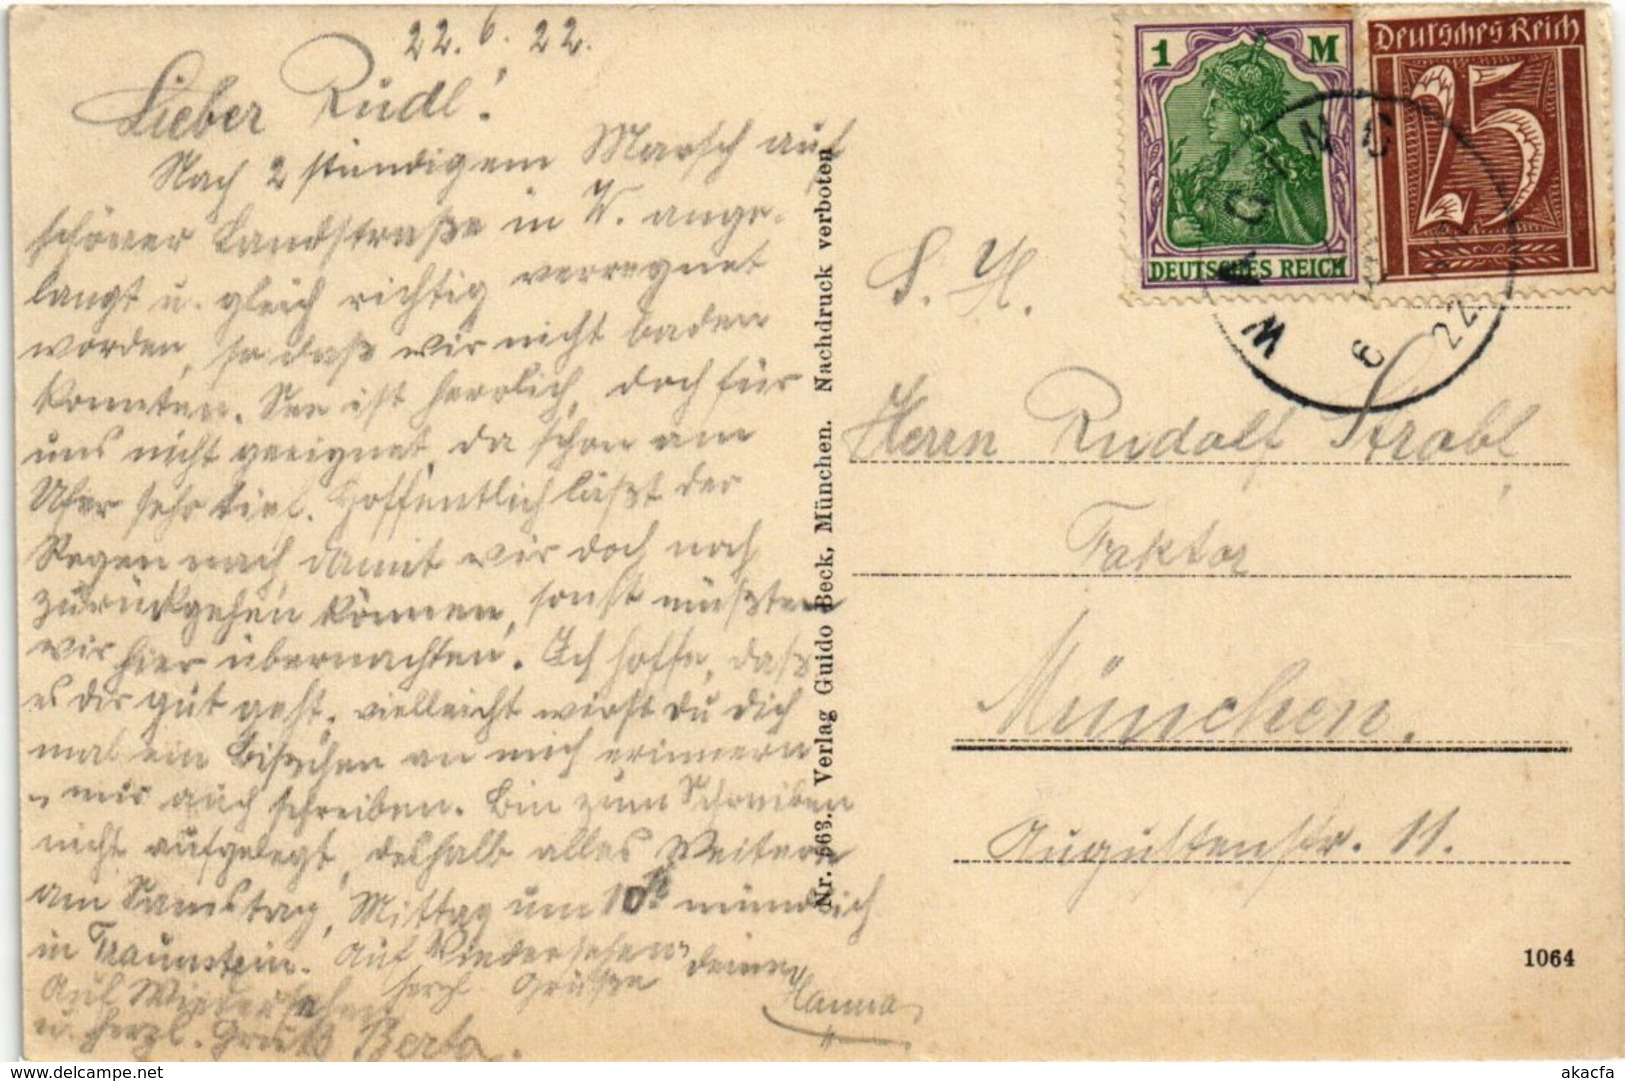 22. 6. 22.
Lieber Rudl!
Nach 2 stündigem Marsch auf
schöner Landstraße in W. ange-
langt u. gleich richtig verregnet
worden, so daß wir nicht baden
konnten. See ist herrlich, doch für
uns nicht geeignet, da schon am
Ufer sehr tief. Hoffentlich läßt der
Regen nach, damit wir doch noch
zurückgehen können, sonst müßten
wir hier übernachten. Ich hoffe, daß
es dir gut geht, vielleicht wirst du dich
mal ein bischen an mich erinnern
u. mir auch schreiben. Bin zum Schreiben
nicht aufgelegt, deshalb alles Weitere
am Samstag, Mittag um 10h mündlich
in Traunstein. Auf Wiedersehen
herzl. Grüße deine
Hanna
Auf Wiedersehen
u. herzl. Gruß Berta.
Nr. 563. Verlag Guido Beck, München. Nachdruck verboten
1 M
DEUTSCHES REICH
Deutsches Reich
25
WAGING
6 22
S. H.
Herrn Rudolf Strobl,
Faktor
München.
Augustenstr. 11.
1064
http://www.delcampe.net
akacfa